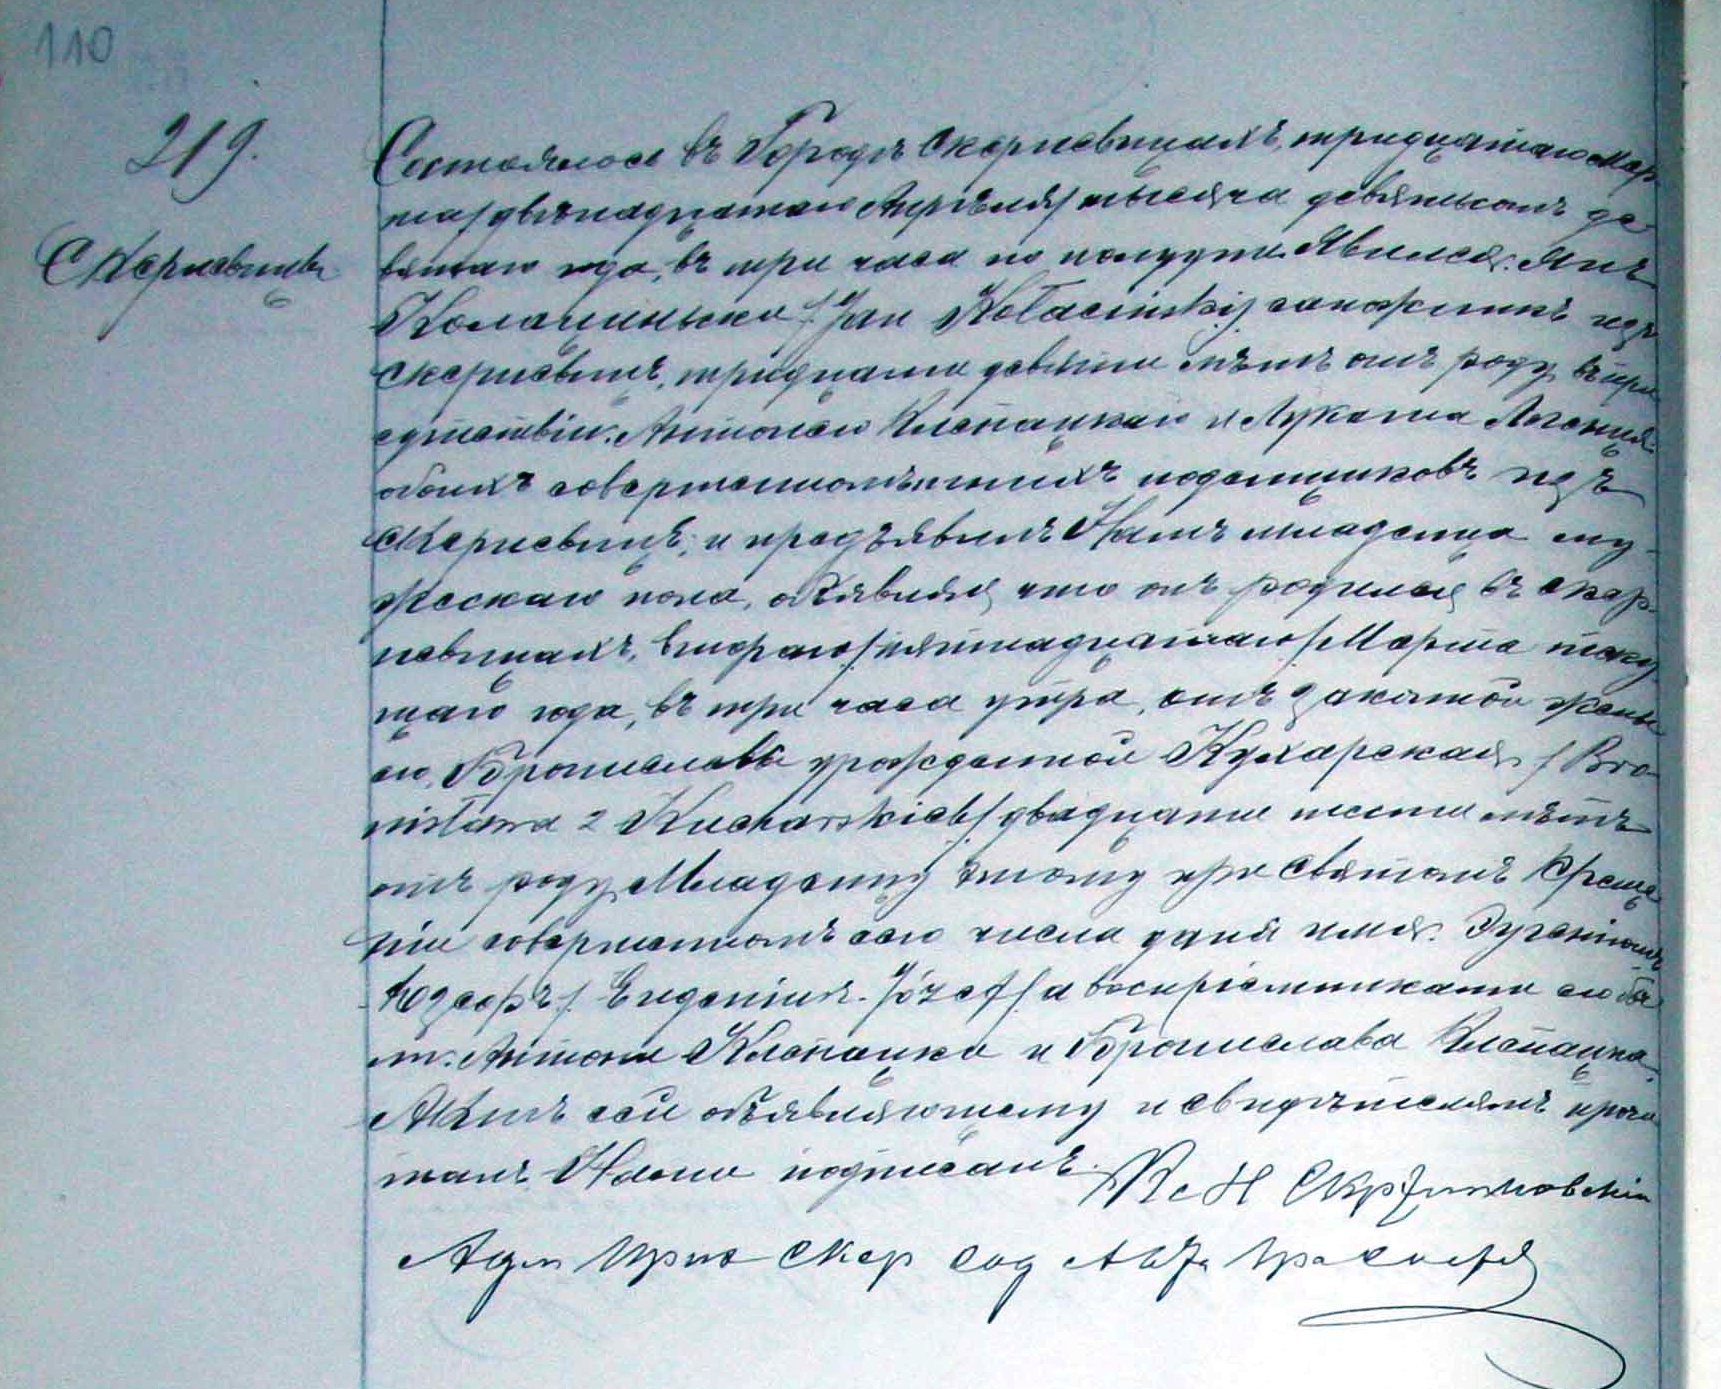 110
219.
Скерневицы
Состоялось въ Городѣ Скерневицахъ, тридцатаго Мар
та/двѣнадцатаго Апрѣля/тысяча девятьсотъ де-
вятаго года, въ три часа по полудни. Явился: Янъ
Колациньски /: Jan Kołaciński/ сапожникъ изъ
Скерневицъ, тридцати девяти лѣтъ отъ роду, въ при
сутствіи: Антонего Клепацкаго и Лукаша
обоихъ совершеннолѣтнихъ поденщиковъ изъ
Скерневицъ; и предъявилъ Намъ младенца му-
жескаго пола, объявляя, что онъ родился въ Скер-
невицахъ, втораго/пятнадцатаго/Марта теку
щаго года, въ три часа утра, отъ законной жены
его, Брониславы урожденной Кухарская /Bro
nisława z Kucharskich/двадцати шести лѣтъ
отъ роду. Младенцу этому при Святомъ Креще
ніи совершенномъ сего числа дано имя: Эугеніюшъ
Юзефъ /: Eugeniusz-Józef/а воспріемниками его бы
ли: Антони Клепацки и Бронислава Клепацка.
Актъ сей объявляющему и свидѣтелямъ прочи
танъ Нами подписанъ. Кс Н
Адм Скер Сод